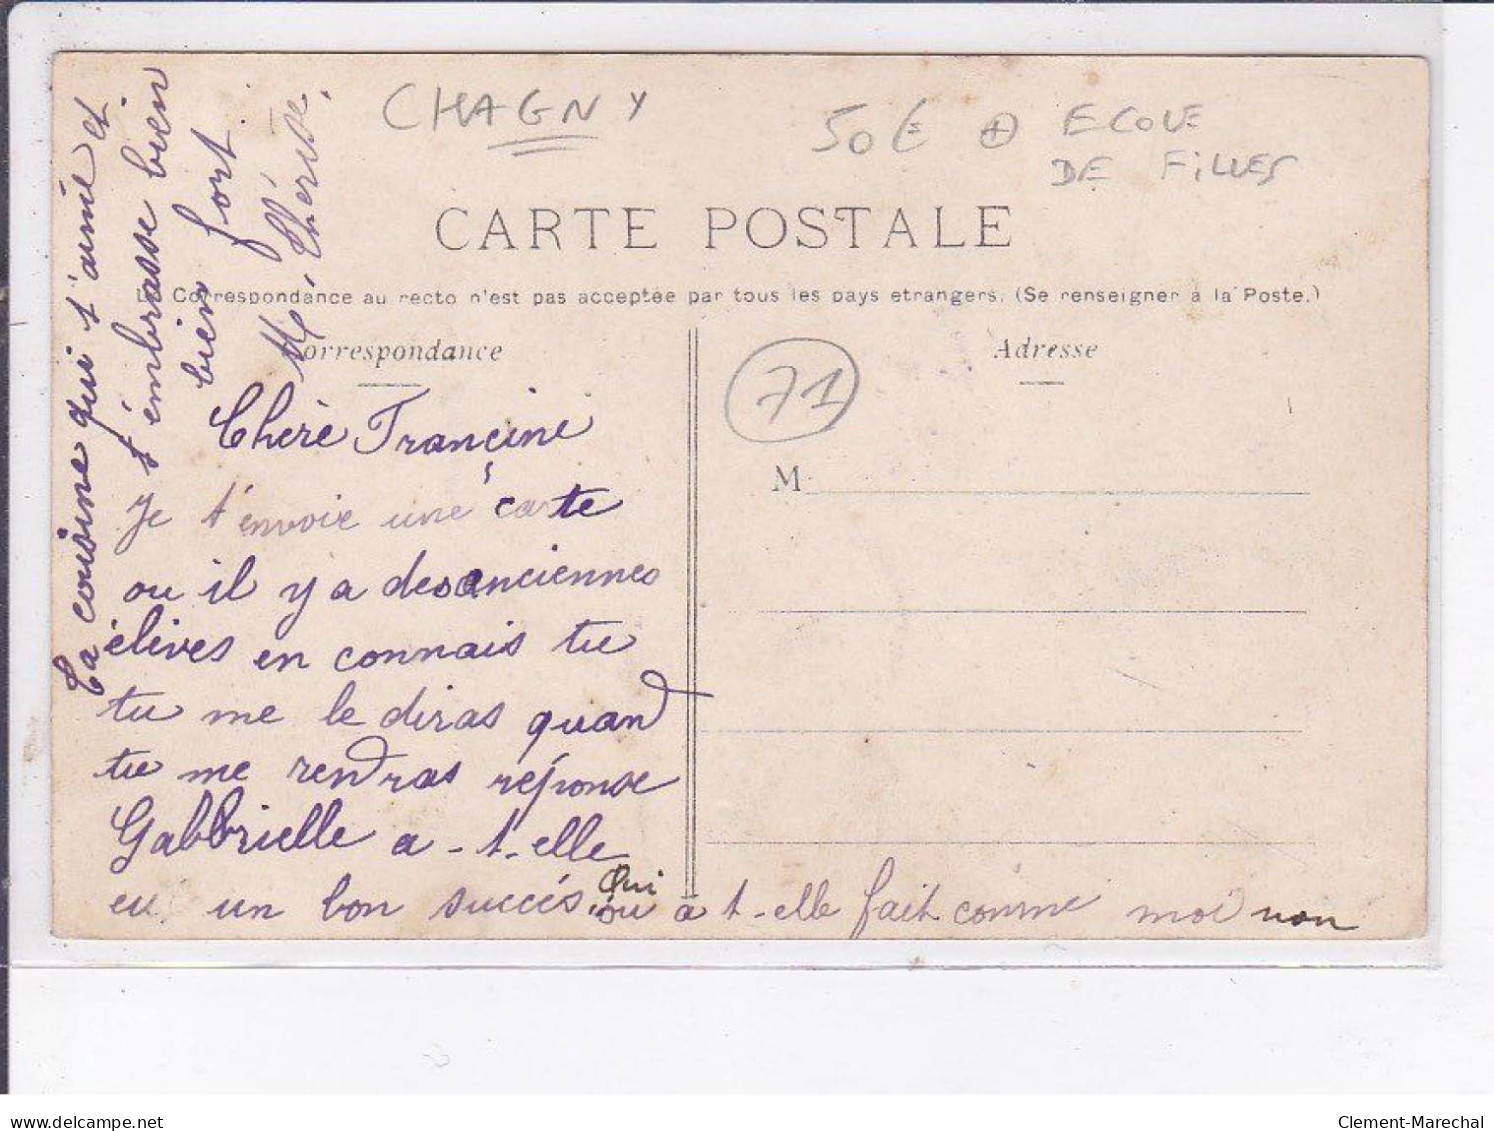 CHAGNY
50€ + ECOLE
DE FILLES
CARTE POSTALE
La Correspondance au recto n'est pas acceptée par tous les pays etrangers. (Se renseigner à la Poste.)
Correspondance
Adresse
71
M
Chère Françine
Je t'envoie une carte
ou il y a des anciennes
élèves en connais tu
tu me le diras quand
tu me rendras réponse
Gabbrielle a-t-elle
eu un bon succés Oui ou a t-elle fait comme moi non
Ta cousine qui t'aime et
t'embrasse bien
bien fort.
M. Thérèse.
delcampe.net
Clement-Marechal